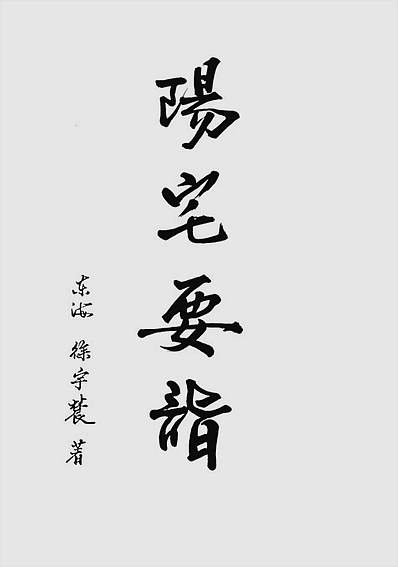 陽宅要詣
东海 徐宇辳 著